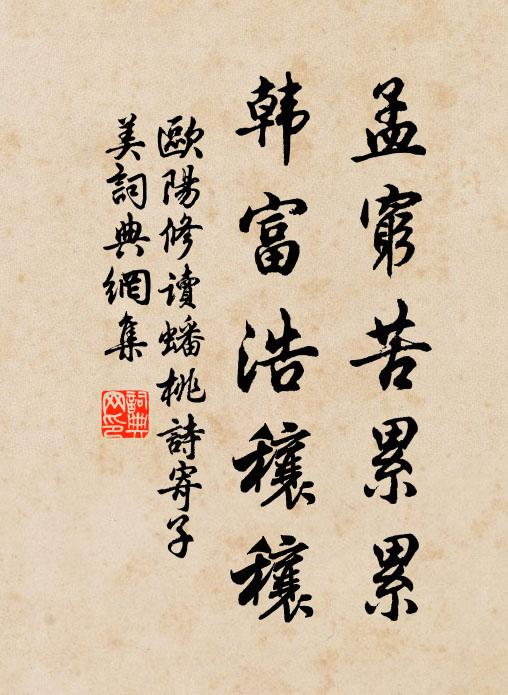 孟窮苦累累
韓富浩穰穰
歐陽修讀蟠桃詩寄子
美詞典網集
詞典
网印